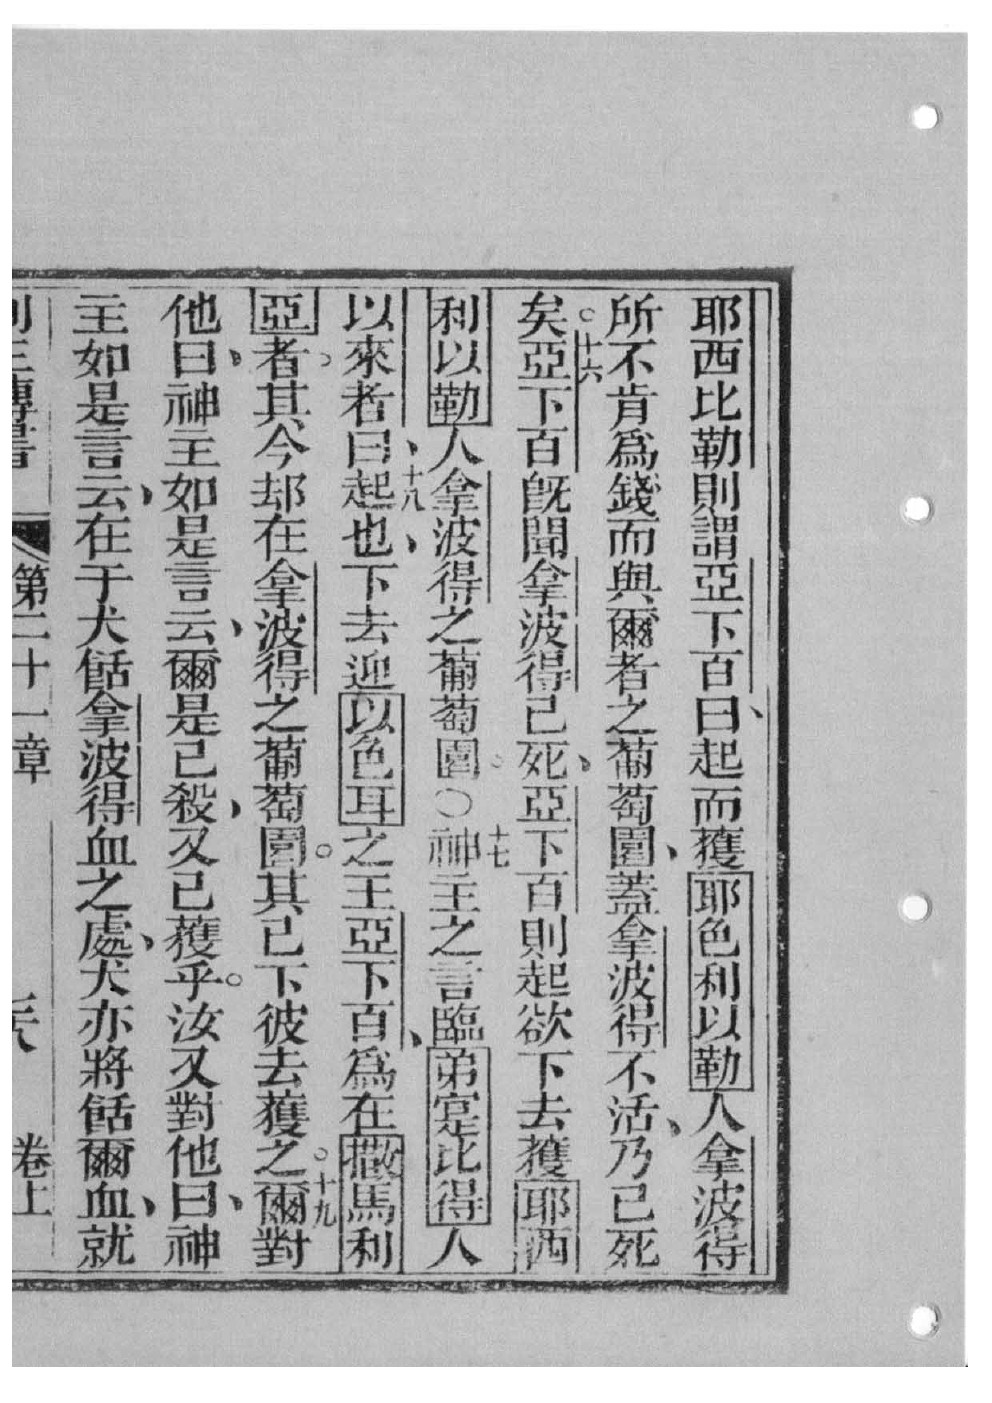 耶西比勒則謂亞下百曰、起而獲耶色利以勒人拿波得
所不肯爲錢而與爾者之葡萄園、蓋拿波得不活、乃已死
矣。十六亞下百旣聞拿波得已死、亞下百則起欲下去獲耶西
利以勒人拿波得之葡萄園。〇十七神主之言臨弟寔比得人
以來者曰、十八起也、下去迎以色耳之王亞下百、爲在撒馬利
亞者。其今却在拿波得之葡萄園。其已下彼去獲之。十九爾對
他曰、神主如是言云、爾是已殺、又已獲乎。汝又對他曰、神
主如是言云、在于犬餂拿波得血之處、犬亦將餂爾血、就
列王傳書 第二十一章 卷上